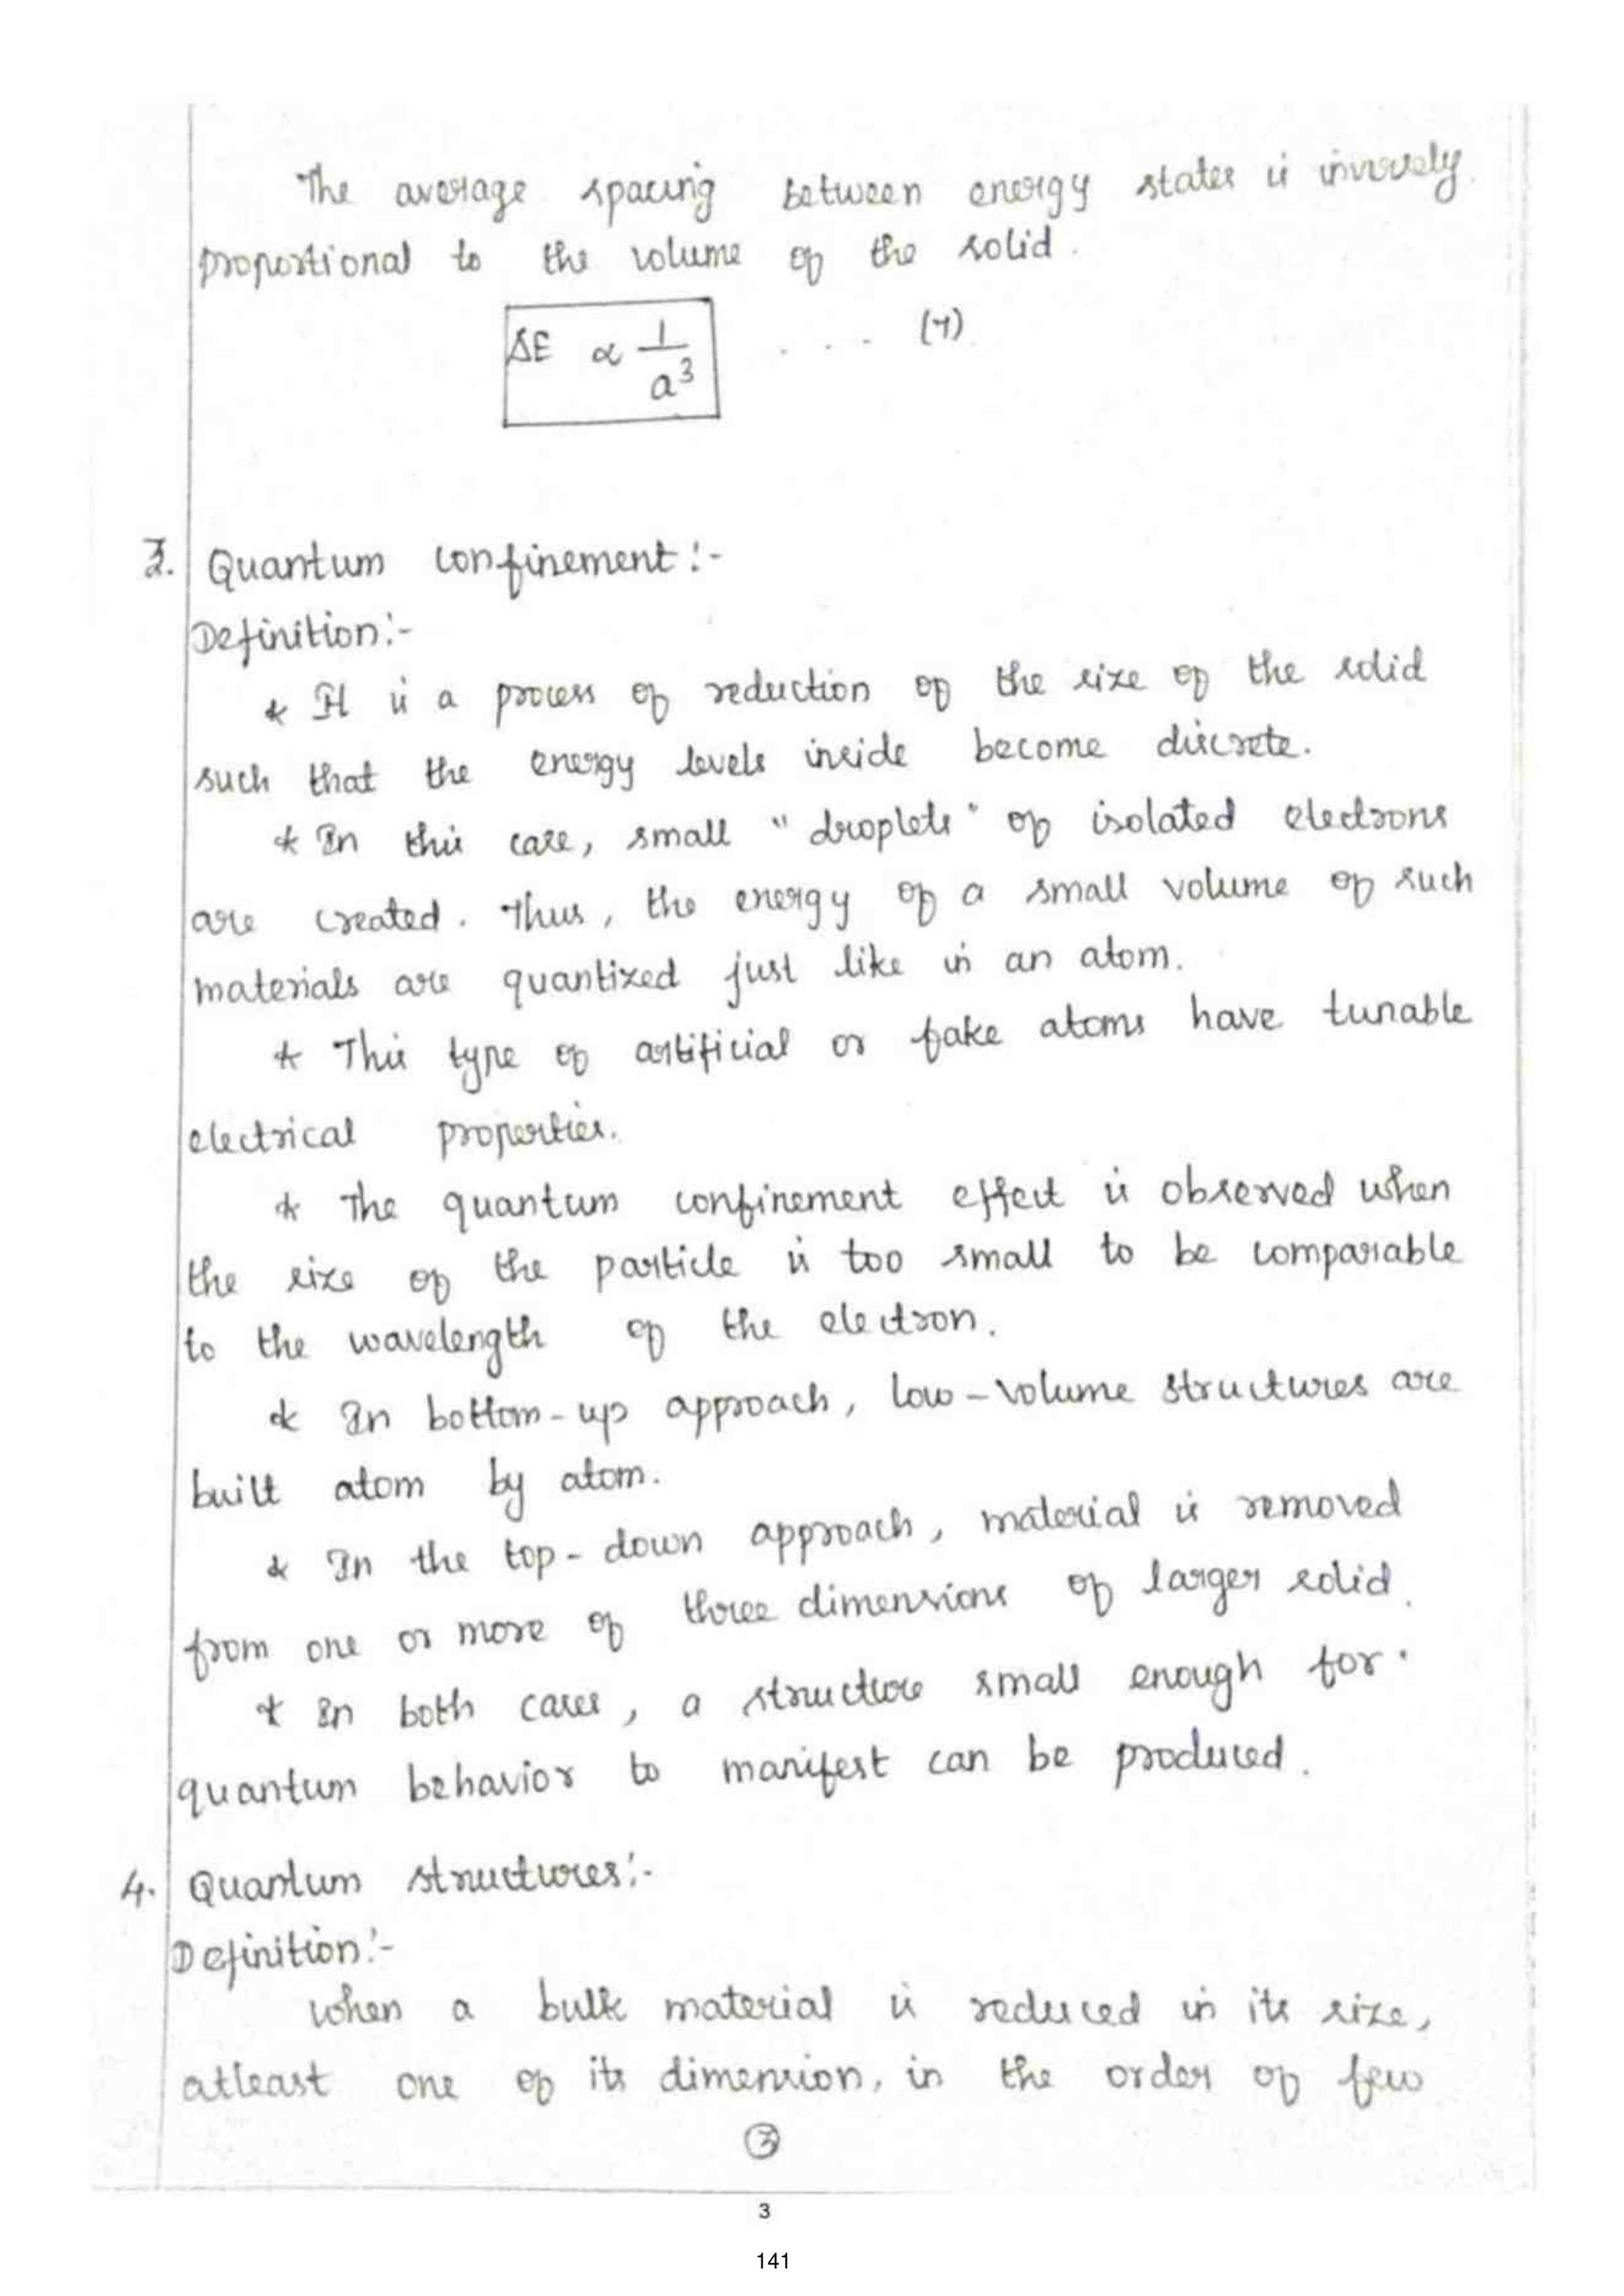 The average spacing between energy states is inversely
proportional to the volume of the solid.
ΔE ∝ 1/a³ . . . (7)
3. Quantum confinement:-
Definition:-
* It is a process of reduction of the size of the solid
such that the energy levels inside become discrete.
* In this case, small "droplets" of isolated electrons
are created. Thus, the energy of a small volume of such
materials are quantized just like in an atom.
* This type of artificial or fake atoms have tunable
electrical properties.
* The quantum confinement effect is observed when
the size of the particle is too small to be comparable
to the wavelength of the electron.
* In bottom-up approach, low-volume structures are
built atom by atom.
* In the top-down approach, material is removed
from one or more of three dimensions of larger solid.
* In both cases, a structure small enough for
quantum behavior to manifest can be produced.
4. Quantum structures:-
Definition:-
When a bulk material is reduced in its size,
atleast one of its dimension, in the order of few
3
3
141